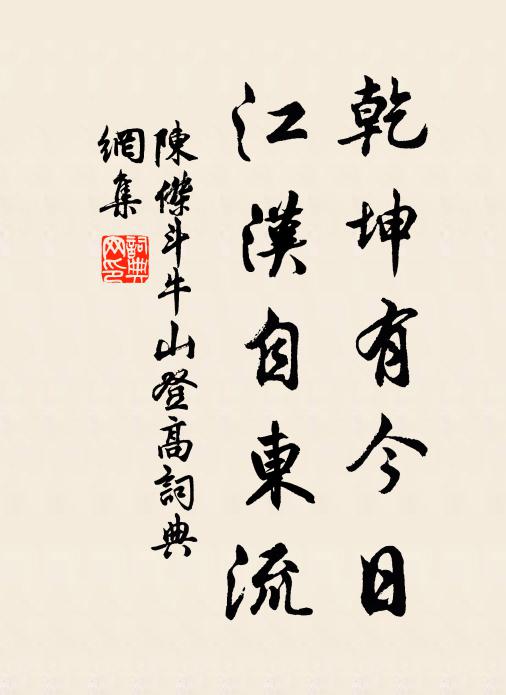 乾坤有今日
江漢自東流
陳傑斗牛山登高詞典
網集
詞典网印